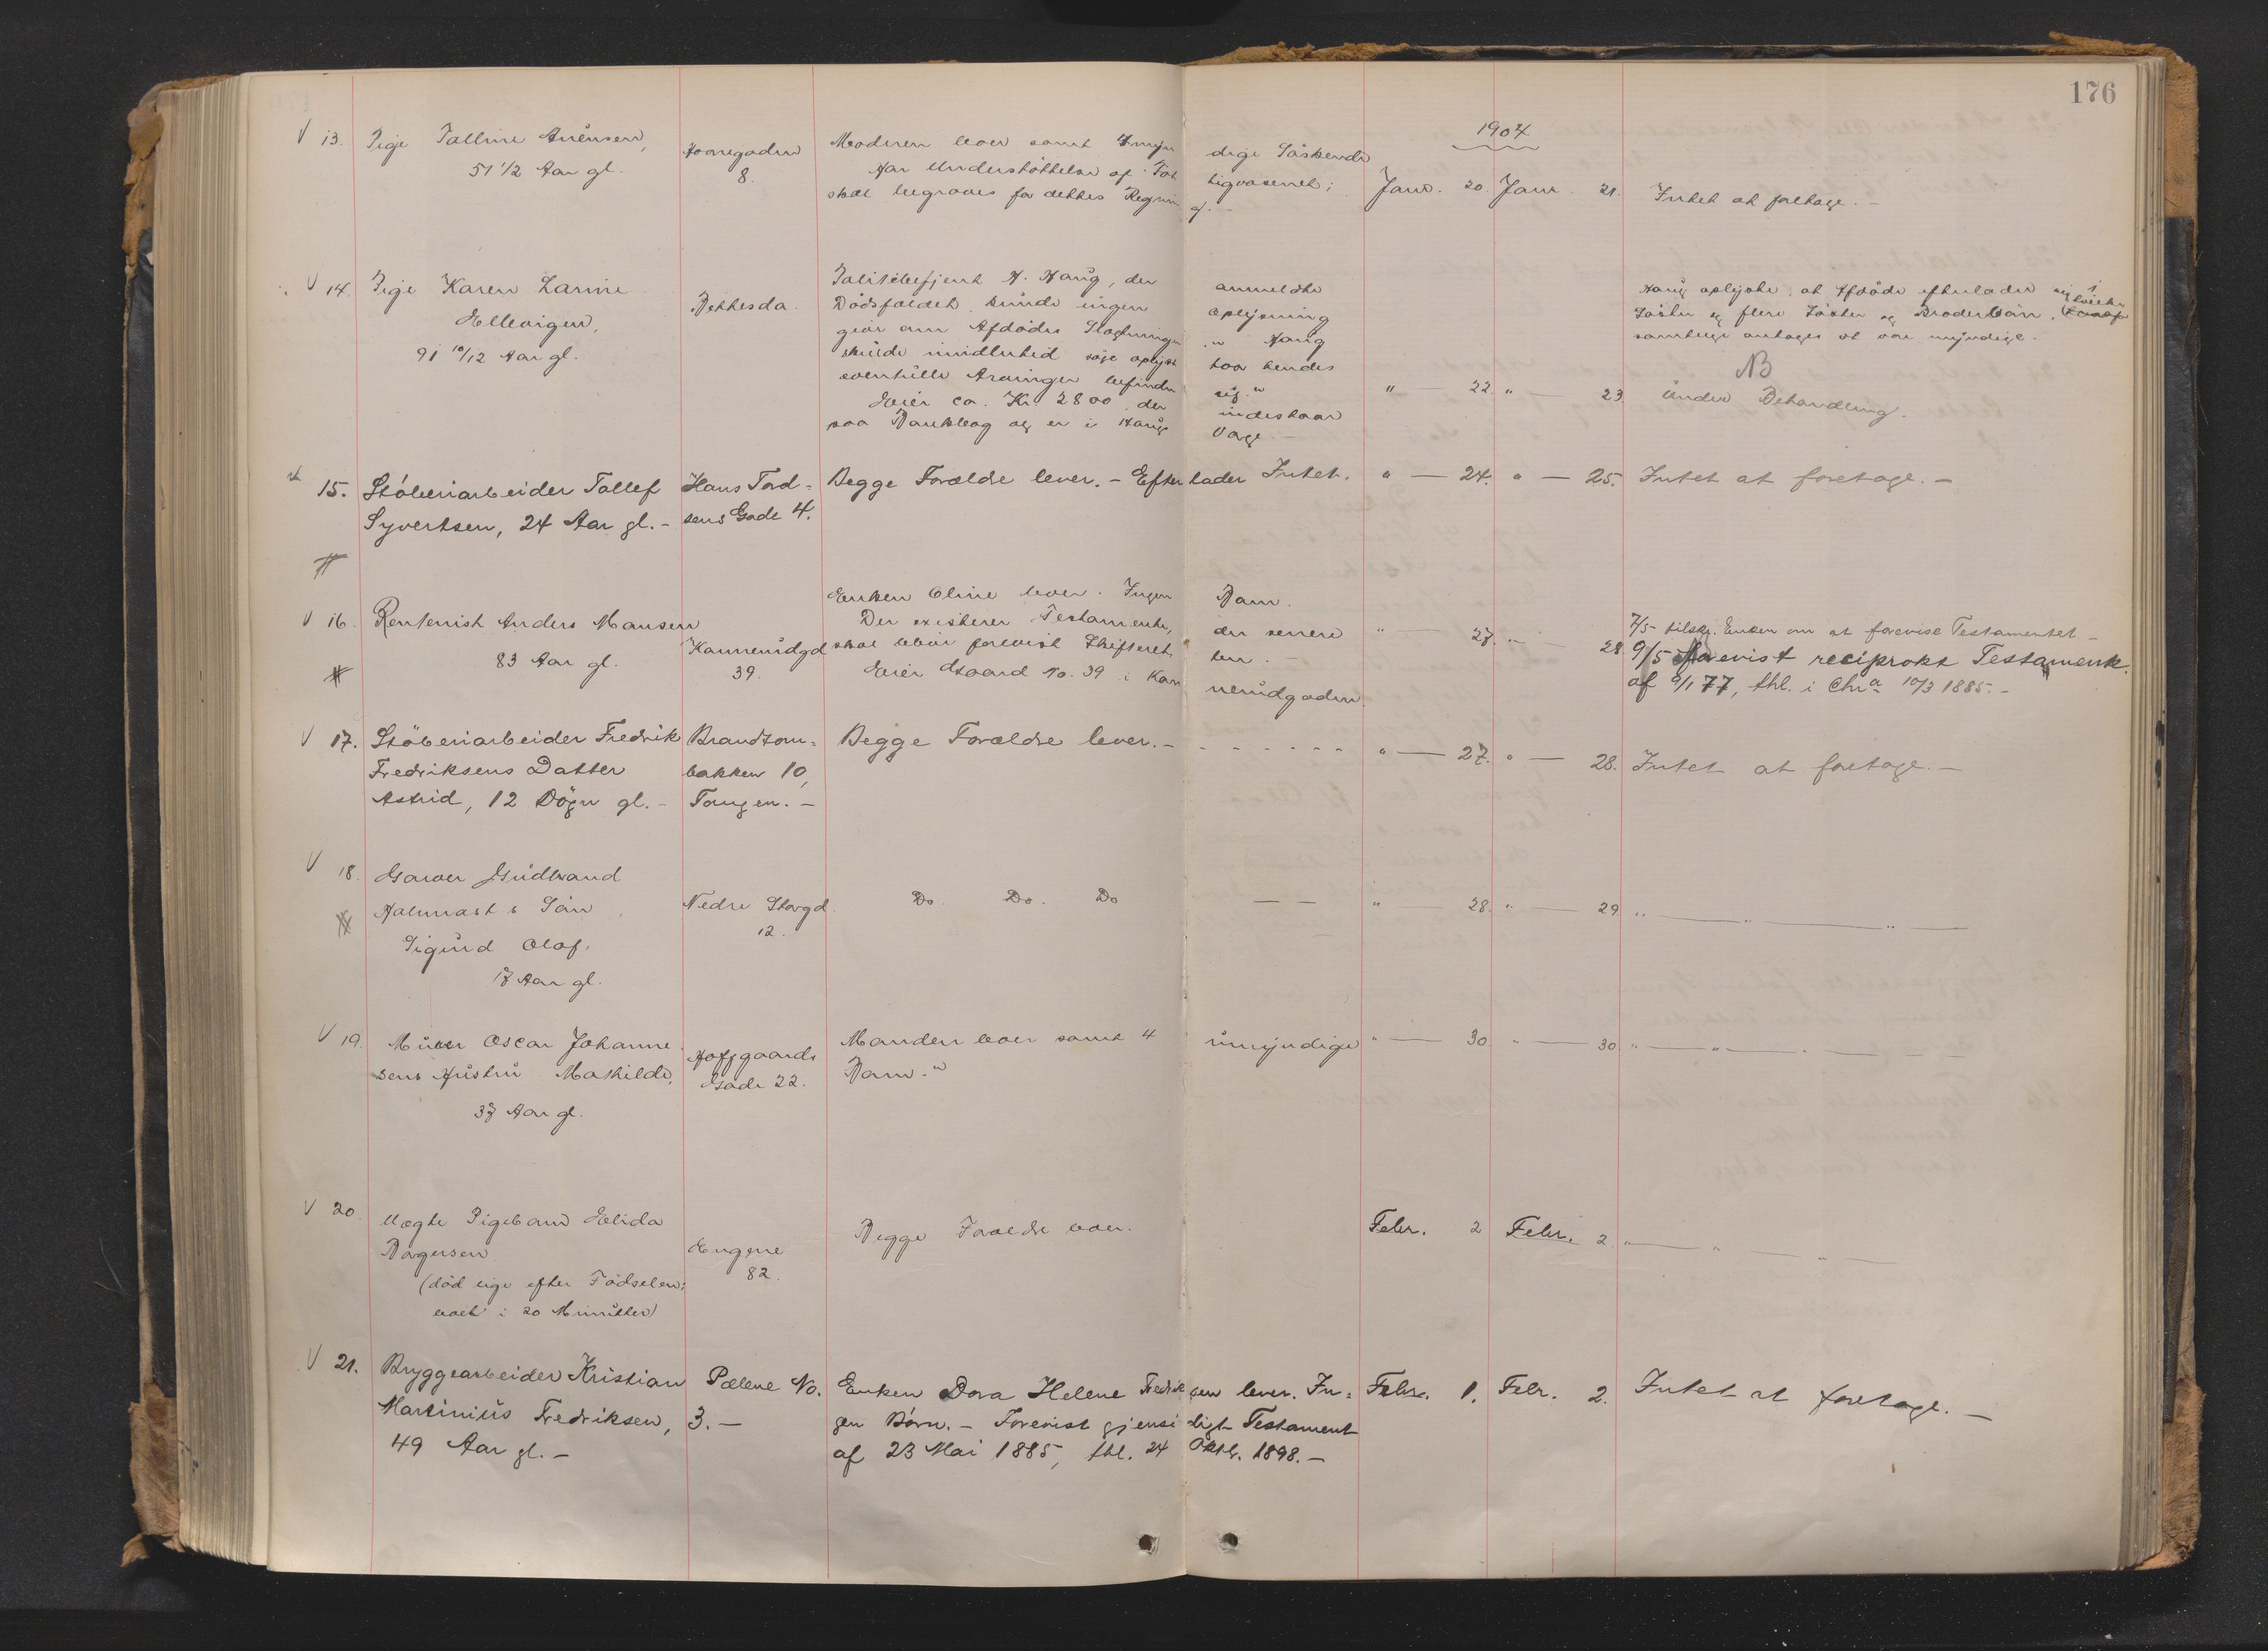 176
1904
13. Pige Talline Aurensen,
51 1/2 Aar gl.
Havnegaden
8.
Moderen lever samt 4 myn dige Söskende
Har Understöttelse af Fat tigvæsenet;
skal begraves for dettes Regning.
Janr. 20. Janr. 21. Intet at foretage. -
14. Pige Karen Larine
Ellevigen,
91 10/12 Aar gl.
Bethesda.
Politibetjent H. Haug, der anmeldte
Dödsfaldet, kunde ingen oplysning
give om Afdödes Slægtninger. Haug
skulde imidlertid söge oplyst hvor hendes
eventuelle Arvinger befinder sig.
Eier ca. Kr. 2800, der indestaar
paa Bankbog og er i Haugs Varge.
" — 22. " — 23.
Haug oplyste, at Afdöde efterlader sig 1
Söster og flere Söster og Broderbörn,
samtlige antages at være myndige.
NB
Under Behandling.
15. Stöberiarbeider Tollef
Syvertsen, 24 Aar gl. -
Hans Tord=
sens Gade 4.
Begge Forældre lever. - Efterlader Intet.
" — 24. " — 25. Intet at foretage. -
16. Rentenist Anders Mansen
83 Aar gl.
Kannemidgd
39.
Enken Oline lever. Ingen Barn.
Der existerer Testamente, der senere
skal blive forevist Skifteretten.
Eier Gaard No. 39 i Kannemidgaden.
" — 27. " — 28.
7/5 tilskr. Enken om at forevise Testamentet -
9/5 Forevist reciprokt Testament
af 9/1 77, thl. i Chra 10/3 1885. -
17. Stöberiarbeider Fredrik
Fredriksens Datter
Astrid, 12 Dögn gl. -
Brandtom=
bakken 10,
Tangen. -
Begge Forældre lever. -
" — 27. " — 28. Intet at foretage. -
18. Garver Gudbrand
Halmrasts Sön
Sigurd Olaf.
17 Aar gl.
Nedre Storgd.
12.
Do. Do. Do
" — 28. " — 29. " — " — " —
19. Murer Oscar Johanne
sens Hustru Mathilde,
37 Aar gl.
Hoffgaards
Gade 22.
Manden lever samt 4 umyndige
Barn.
" — 30. " — 30. " — " —
20. Uægte Pigebarn Elida
Borgersen
(död lige efter Födselen;
levet i 20 Minutter)
Engene
82.
Begge Forældre lever.
Febr. 2 Febr. 2. " — " — " —
21. Bryggearbeider Kristian
Martinius Fredriksen,
49 Aar gl. -
Pælene No.
3. -
Enken Dora Helene Fredriksen lever. In=
gen Börn. - Forevist gjensidigt Testament
af 23 Mai 1885, thl. 24 Oktb. 1898. -
Febr. 1. Febr. 2. Intet at foretage. -